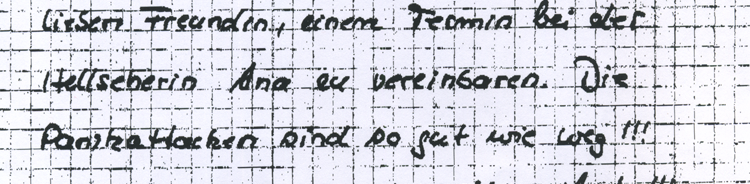 lieben Freundin, einem Termin bei der
Hellseherin Ana zu vereinbaren. Die
Panikattacken sind so gut wie weg !!!